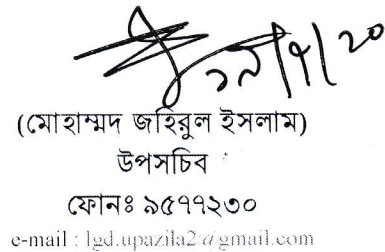 ১৯/৭/২০
(মোহাম্মদ জহিরুল ইসলাম)
উপসচিব
ফোনঃ ৯৫৭৭২৩০
e-mail : lgd.upazila2@gmail.com